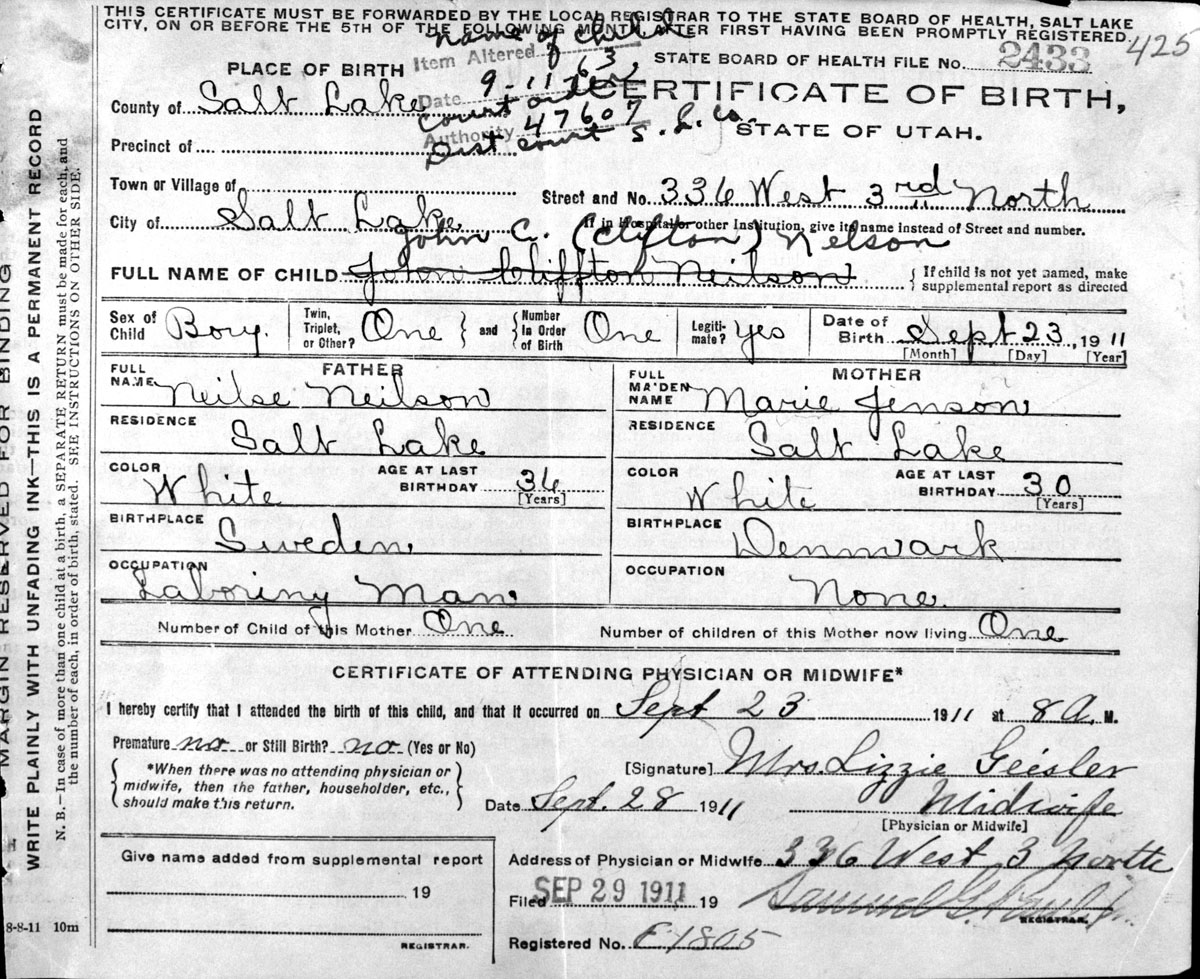 THIS CERTIFICATE MUST BE FORWARDED BY THE LOCAL REGISTRAR TO THE STATE BOARD OF HEALTH, SALT LAKE
CITY, ON OR BEFORE THE 5TH OF THE FOLLOWING MONTH AFTER FIRST HAVING BEEN PROMPTLY REGISTERED.
425
name of child
Item Altered
STATE BOARD OF HEALTH FILE No. 2433
PLACE OF BIRTH
Date 9-11-63,
County of Salt Lake
court order
CERTIFICATE OF BIRTH,
Authority 47607
STATE OF UTAH.
Precinct of
Dist court S. L. Co.
Town or Village of
Street and No. 336 West 3rd North
City of Salt Lake
If in Hospital or other Institution, give its name instead of Street and number.
John C. (Clifton) Nelson
FULL NAME OF CHILD John Cliffton Neilson
{ If child is not yet named, make
supplemental report as directed
Sex of Child Bory. Twin, Triplet, or Other? One } and { Number In Order of Birth One Legiti-mate? Yes Date of Birth Sept 23, 1911
[Month] [Day] [Year]
FATHER
FULL NAME Neilse Neilson
RESIDENCE
Salt Lake
COLOR White AGE AT LAST BIRTHDAY 34
[Years]
BIRTHPLACE
Sweden
OCCUPATION
Laboring Man
MOTHER
FULL MAIDEN NAME Marie Jenson
RESIDENCE
Salt Lake
COLOR White AGE AT LAST BIRTHDAY 30
[Years]
BIRTHPLACE
Denmark
OCCUPATION
None.
Number of Child of this Mother One
Number of children of this Mother now living One
CERTIFICATE OF ATTENDING PHYSICIAN OR MIDWIFE*
I hereby certify that I attended the birth of this child, and that it occurred on Sept 23 1911 at 8 A. M.
Premature no or Still Birth? no (Yes or No)
{ *When there was no attending physician or
midwife, then the father, householder, etc.,
should make this return. }
[Signature] Mrs. Lizzie Geisler
Date Sept. 28 1911
Midwife
[Physician or Midwife]
Give name added from supplemental report
19
REGISTRAR.
Address of Physician or Midwife 336 West 3 North
Filed SEP 29 1911 19
Samuel G.
REGISTRAR.
Registered No. E1805
8-8-11 10m
MARGIN RESERVED FOR BINDING
WRITE PLAINLY WITH UNFADING INK—THIS IS A PERMANENT RECORD
N. B.—In case of more than one child at a birth, a SEPARATE RETURN must be made for each, and
the number of each, in order of birth, stated. SEE INSTRUCTIONS ON OTHER SIDE.